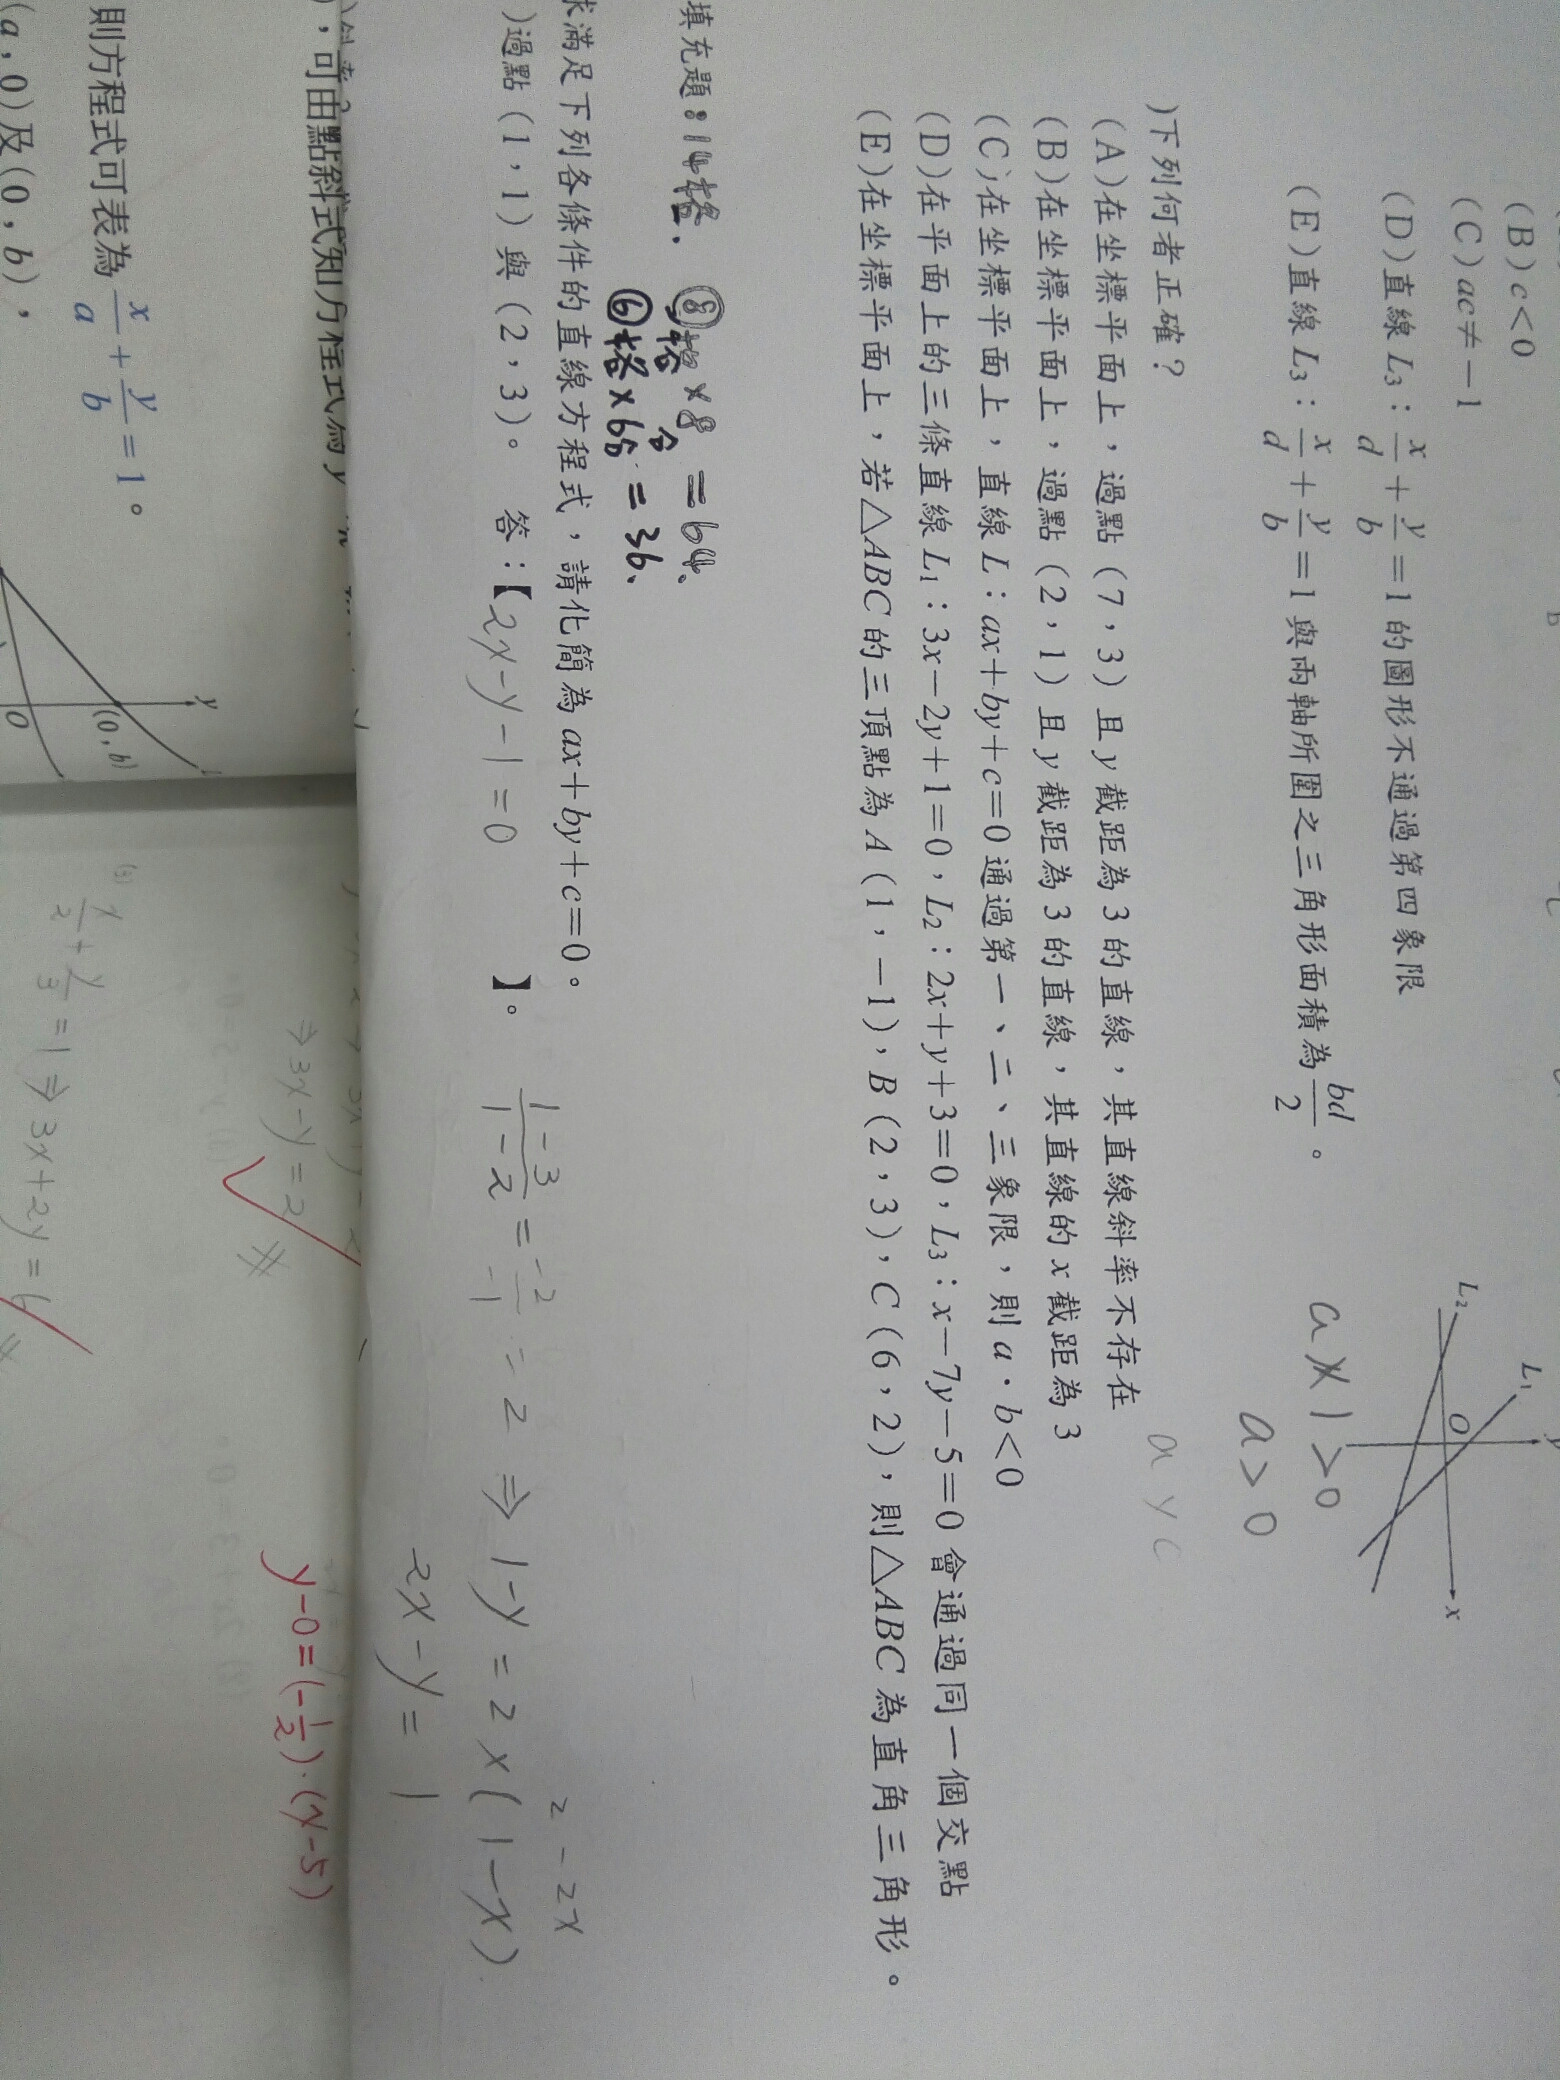 (B) c<0
(C) ac≠－1
(D)直線 L₃：x/d + y/b =1 的圖形不通過第四象限
(E)直線 L₃：x/d + y/b =1 與兩軸所圍之三角形面積為 bd/2 。
L₁
L₂
O
x
a×1>0
a>0
)下列何者正確？
(A)在坐標平面上，過點(7，3)且y截距為3的直線，其直線斜率不存在
(B)在坐標平面上，過點(2，1)且y截距為3的直線，其直線的x截距為3
(C)在坐標平面上，直線L：ax＋by＋c＝0通過第一、二、三象限，則a・b<0
(D)在平面上的三條直線L₁：3x－2y＋1＝0，L₂：2x＋y＋3＝0，L₃：x－7y－5＝0會通過同一個交點
(E)在坐標平面上，若△ABC的三頂點為A(1，－1)，B(2，3)，C(6，2)，則△ABC為直角三角形。
a y c
填充題：14格.
⑧格×8分=64、
⑥格×6分=36、
求滿足下列各條件的直線方程式，請化簡為ax＋by＋c＝0。
)過點(1，1)與(2，3)。 答：【2x-y-1=0】。
1-3/1-2 = -2/-1 = 2 ⇒ 1-y=2×(1-x)
2-2x
2x-y=1
，可由點斜式知方程式為y
y-0=(-1/2)·(x-5)
⇒3x-y=2
則方程式可表為 x/a + y/b =1。
(a，0)及(0，b)，
y
(0，b)
O
(3)
x/2 + y/3 =1 ⇒ 3x+2y=6